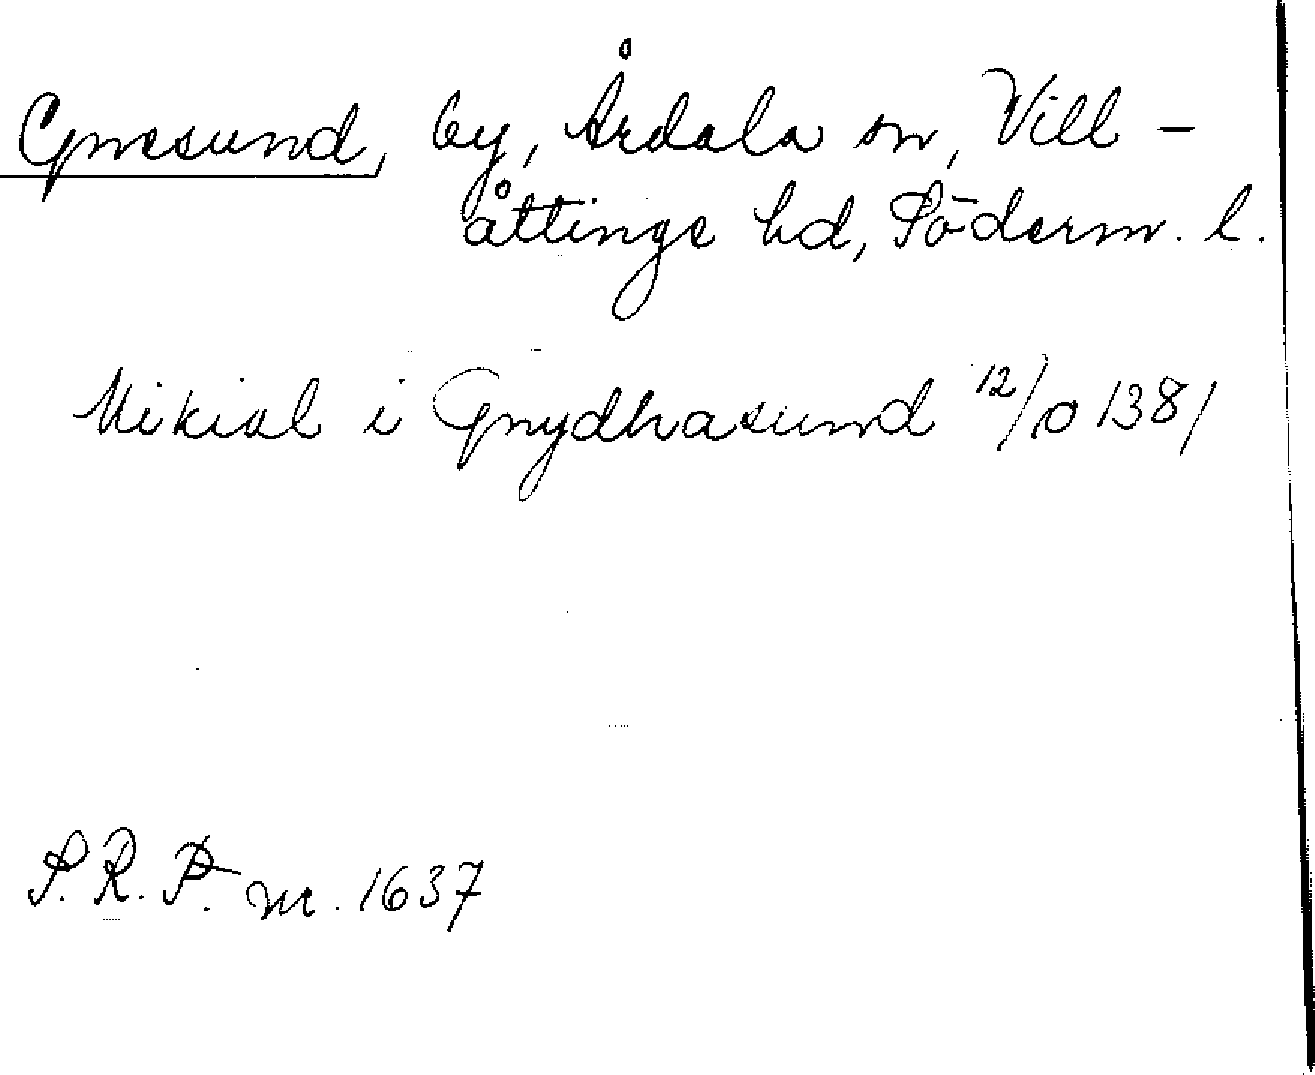 Gnesund, by, Årdala sn, Vill-
åttinge hd, Söderm. l.
Mikial i Gnydhasund 12/10 1381
S.R.P. nr. 1637